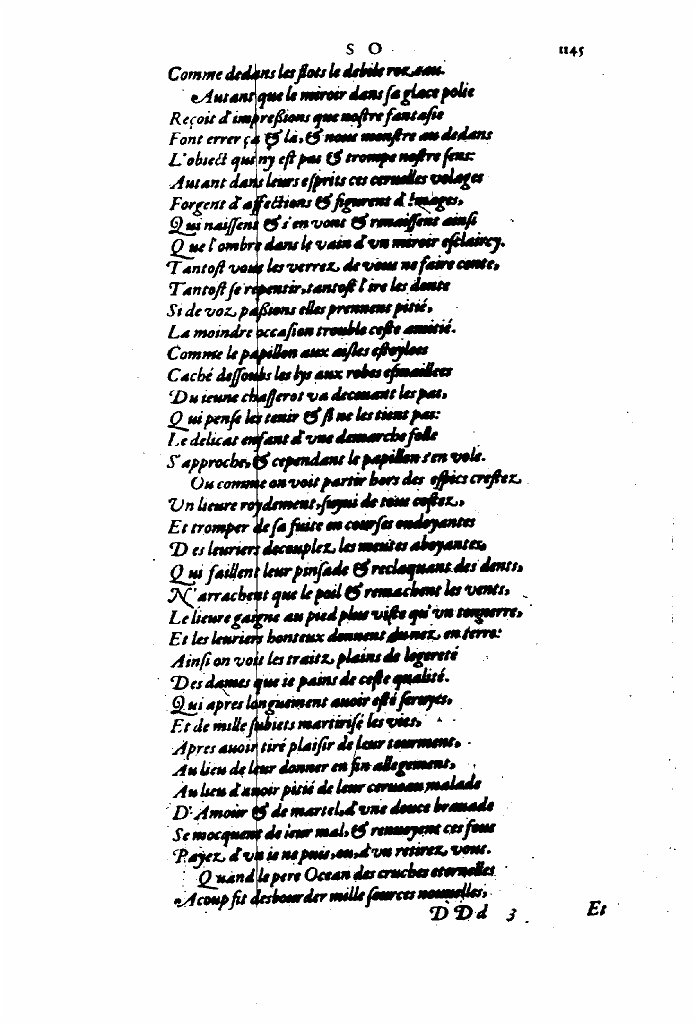 S O 1145
Comme dedans les flots le debile rozeau.
Autant que le miroir dans sa glace polie
Reçoit d'impreßions que nostre fantasie
Font errer ça & là, & nous monstre au dedans
L'obiect qui n'y est pas & trompe nostre sens:
Autant dans leurs esprits ces ceruelles volages
Forgent d'affections & figurent d'Images,
Qui naissent & s'en vont & renaissent ainsi
Que l'ombre dans le vain d'vn miroir esclaircy.
Tantost vous les verrez, de vous ne faire conte,
Tantost se repentir, tantost l'ire les donte
Si de voz paßions elles prennent pitié,
La moindre occasion trouble ceste amitié.
Comme le papillon aux aisles estoylees
Caché dessoubs les lys aux robes esmaillees
Du ieune chasserot va deceuant les pas,
Qui pense les tenir & si ne les tient pas:
Le delicat enfant d'vne demarche folle
S'approche, & cependant le papillon s'en vole.
Ou comme on voit partir hors des espics crestez,
Un lieure roydement, suyui de tous costez,
Et tromper de sa fuite en courses ondoyantes
Des leuriers decouplez, les meutes aboyantes,
Qui faillent leur pinsade & recloquant des dents,
N'arrachent que le poil & remachent les vents,
Le lieure gaigne au pied plus viste qu'vn tonnerre,
Et les leuriers honteux donnent du nez, en terre:
Ainsi on voit les traitz, plains de legereté
Des dames que ie pains de ceste qualité.
Qui apres longuement auoir esté seruyes,
Et de mille subiets martirisé les vies,
Apres auoir tiré plaisir de leur tourment,
Au lieu de leur donner en fin allegement,
Au lieu d'auoir pitié de leur cerueau malade
D'Amour & de martel, d'vne douce brauade
Se mocquent de leur mal, & renuoyent ces fous
Payez, d'vn ie ne puis, ou, d'vn retirez, vous.
Quand le pere Ocean des cruches eternelles
A coup fit desbourder mille sources nouuelles,
DDd 3 Et